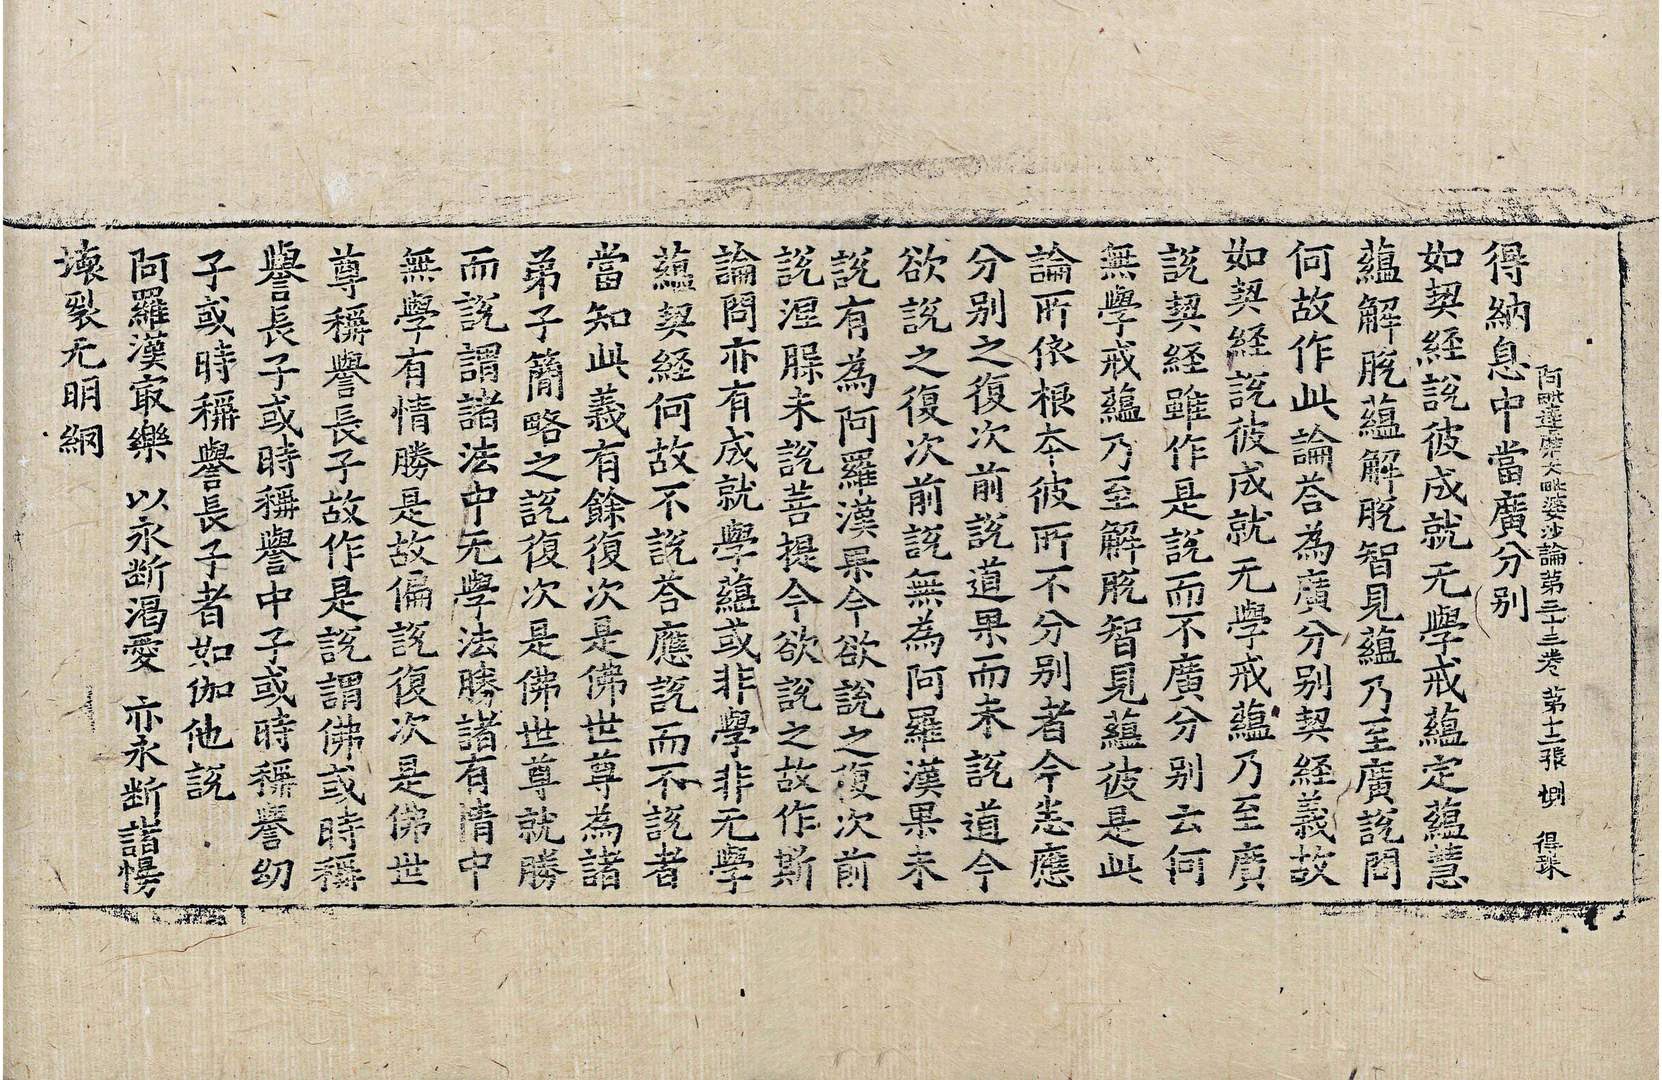 阿毗達磨大毗婆沙論第三十三卷 第十二張 惻 得珠
得納息中當廣分別
如契經說彼成就无學戒蘊定蘊慧
蘊解脫蘊解脫智見蘊乃至廣說問
何故作此論荅為廣分別契經義故
如契經說彼成就无學戒蘊乃至廣
說契經雖作是說而不廣分別云何
無學戒蘊乃至解脫智見蘊彼是此
論所依根本彼所不分別者今悉應
分別之復次前說道果而未說道今
欲說之復次前說無為阿羅漢果未
說有為阿羅漢果今欲說之復次前
說涅槃未說菩提今欲說之故作斯
論問亦有成就學蘊或非學非无學
蘊契經何故不說荅應說而不說者
當知此義有餘復次是佛世尊為諸
弟子簡略之說復次是佛世尊就勝
而說謂諸法中无學法勝諸有情中
無學有情勝是故偏說復次是佛世
尊稱譽長子故作是說謂佛或時稱
譽長子或時稱譽中子或時稱譽幼
子或時稱譽長子者如伽他說
阿羅漢㝡樂 以永断渴愛 亦永断諸慢
壞裂无明網